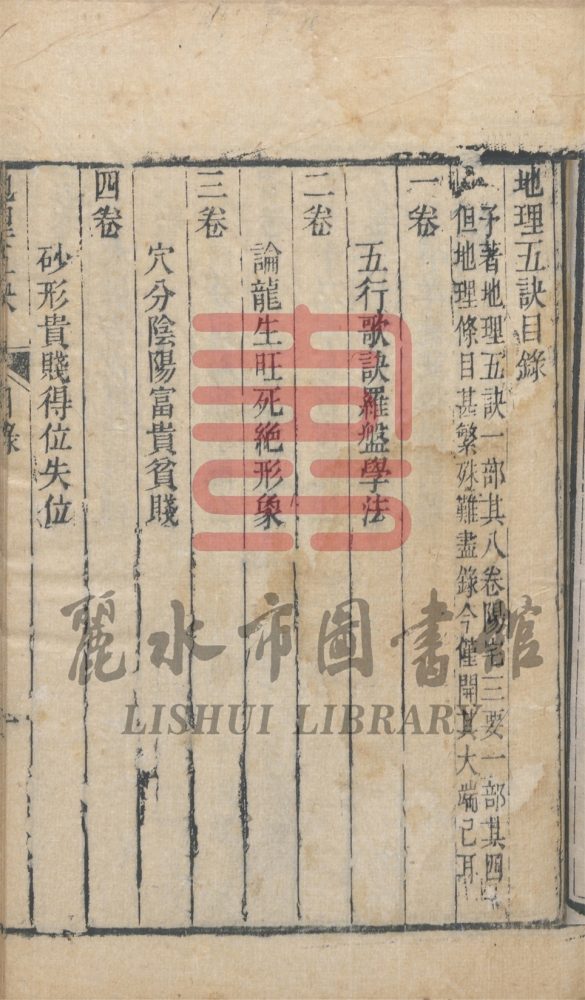 地理五訣目錄
予著地理五訣一部其八卷陽宅三要一部其四
但地理條目甚繁殊難盡錄今僅開其大端已耳
一卷
五行歌訣羅盤學法
二卷
論龍生旺死絕形象
三卷
穴分陰陽富貴貧賤
四卷
砂形貴賤得位失位
地理五訣 目錄
麗水市圖書館
LISHUI LIBRARY